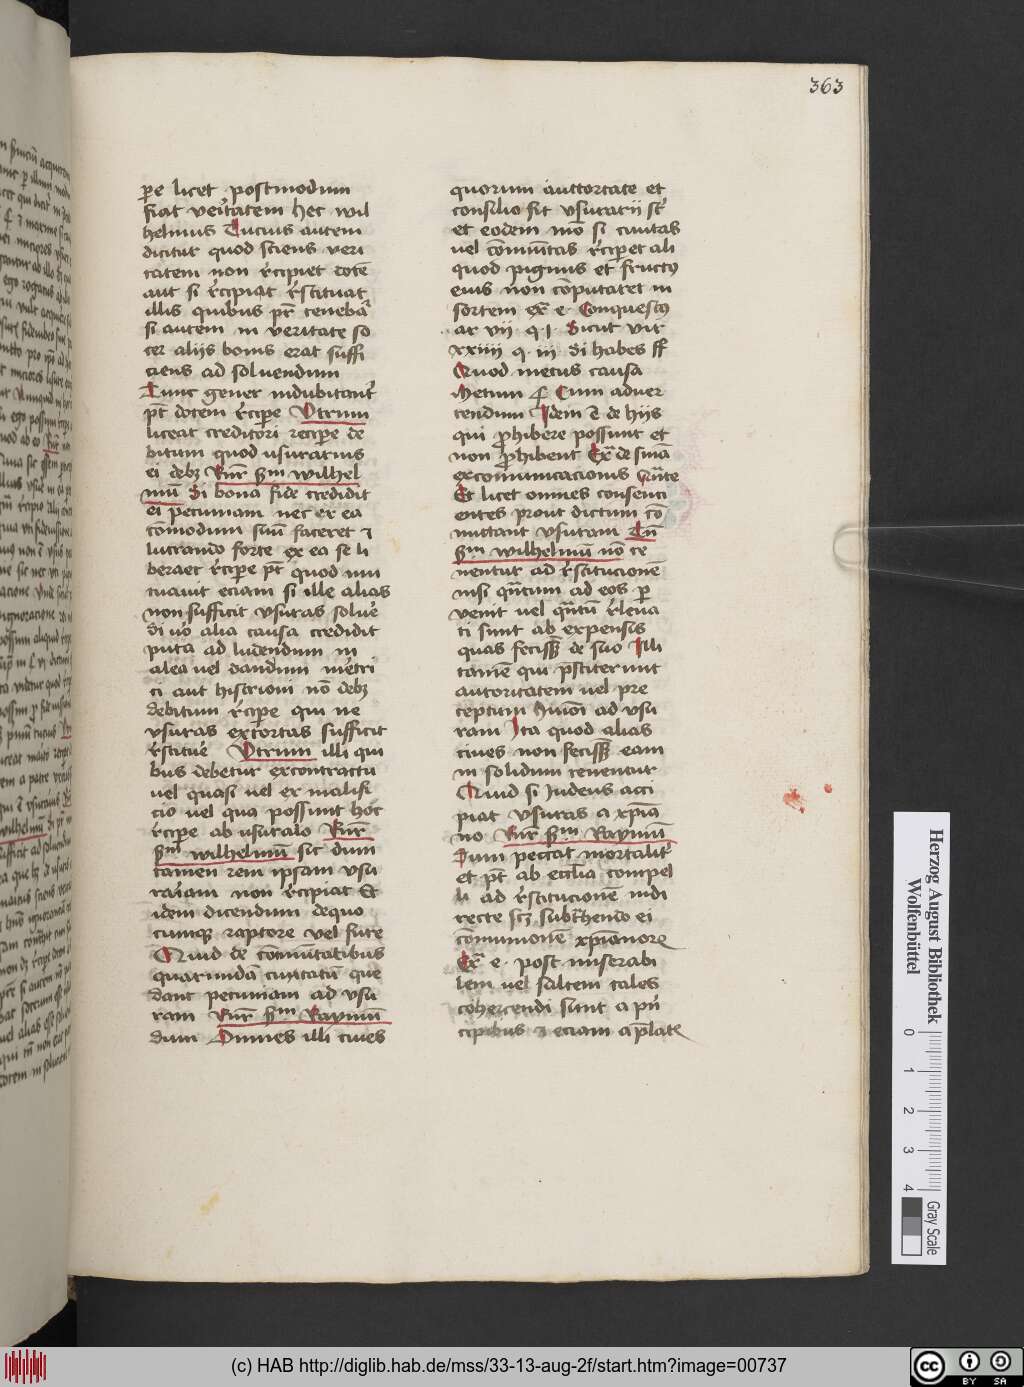 363
pere licet postmodum
fiat veritatem hec wil
helmus Tucius autem
dicitur quod sciens veri
tatem non recipiet dotē
aut si recipiat restituat
illis quibus pr̄ teneba
si autem in veritate so
cer alijs bonis erat suffi
ciens ad soluendum
Tunc gener indubitant̄
pt̄ dotem recipe Utrum
liceat creditori recipe de
bitum quod usurarius
ei debȝ Rn̄r scdm wilhel
mū Si bona fide credidit
ei pecuniam nec ex ea
cōmodum suū faceret ⁊
lucrando forte ex ea se li
beraret recipe pt̄ quod mu
tuauit eciam si ille alias
non sufficit vsuras solue
Si uo alia causa credidit
puta ad ludendum in
alea uel dandum metri
ci aut histrioni nō debȝ
debitum recipe qui ne
vsuras extortas sufficit
restitue Utrum illi qui
bus debetur excontractu
uel quasi uel ex malefi
cio uel qua possunt hoc
recipe ab usurario Rn̄r
scdm wilhelmū sic dum
tamen rem ipsam vsu
rariam non recipiat Et
idem dicendum dequo
cumqꝫ raptore vel fure
Quid de cōmūitatibus
quarundā ciuitatū que
dant pecuniam ad vsu
ram Rn̄r scdm Raymū
dum Omnes illi ciues
quorum auctoritate et
consilio fit vsurarii st̄
et eodem mō si ciuitas
uel cōmūitas recipet ali
quod pignus et fructꝰ
eius non cōputaret in
sortem ex̄ e Conquestꝰ
ar vii q i Sicut vir
xxiiii q iii Si habes ff
Quod metus causa
Metum § Cum aduer
tendum Idem ē de hijs
qui prohibere possunt et
non prohibent Ex̄ de sn̄iā
excomunicacionis Qn̄te
Et licet omnes consenti
entes prout dictum cō
mittant vsuram Tn̄
scdm wilhelmū nō te
nentur ad restitucionē
nisi qn̄tum ad eos per
venit uel qn̄tū releua
ti sunt ab expensis
quas fecissȝ de suo Illi
tamē qui prestiterunt
autoritatem uel pre
ceptum hm̄oi ad vsu
ram Ita quod alias
ciues non fecissȝ eam
in solidum tenentur
Quid si Judeus acci
piat vsuras a xpīa
no Rn̄r scdm Raymū
Dum peccat mortalit̄
et pt̄ ab eccl̄ia compel
li ad restitucionē indi
recte scȝ subt̄hendo ei
cōmunionē xpīanoꝝ
Ex̄ e post miserabi
lem uel saltem tales
cohercendi sunt a prin
cipibus ⁊ eciam a p̄latꝭ
Herzog August Bibliothek
Wolfenbüttel
0 1 2 3 4
Gray Scale
(c) HAB http://diglib.hab.de/mss/33-13-aug-2f/start.htm?image=00737
cc BY SA